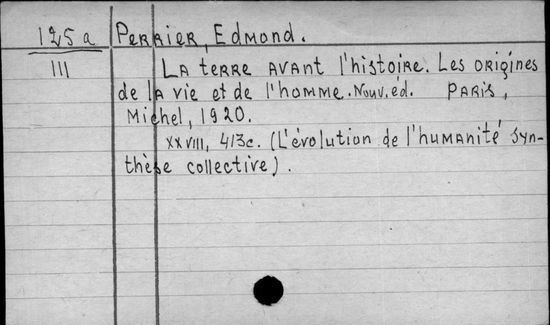 125a PERRIER, EDMOND.
III LA TERRE AVANT l'histoire. Les ORIGINES
de LA vie et de l'homme. Nouv. éd. PARIS,
Michel, 1920.
XXVIII, 413c. (L'évolution de l'humanité syn-
thèse collective).